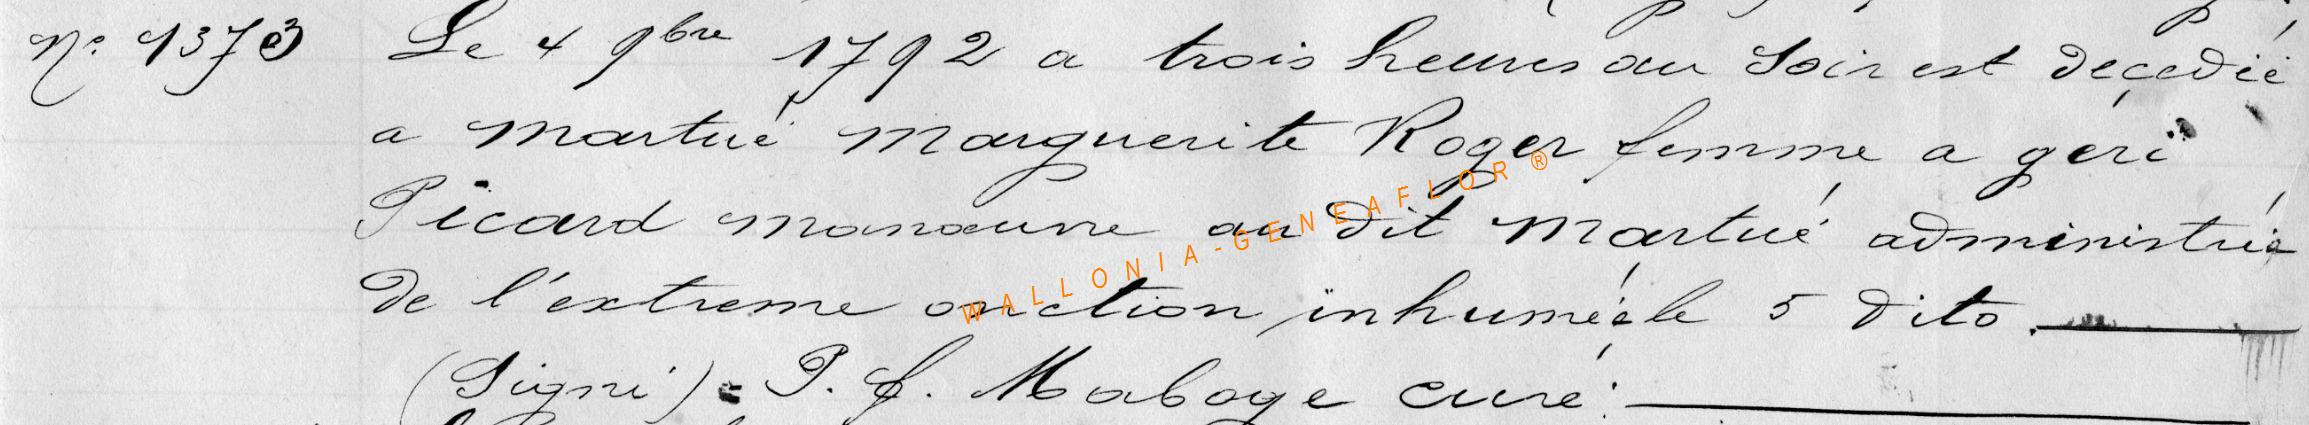 N.o 1373 Le 4 9bre 1792 a trois heures au soir est deçedée
a Martué Marguerite Roger femme a géri
Picard manœuvre au dit Martué administrée
de l'extreme onction, inhumée le 5 dito.
(Signé) P. J. Maboge curé.
WALLONIA-GENEAFLOR®